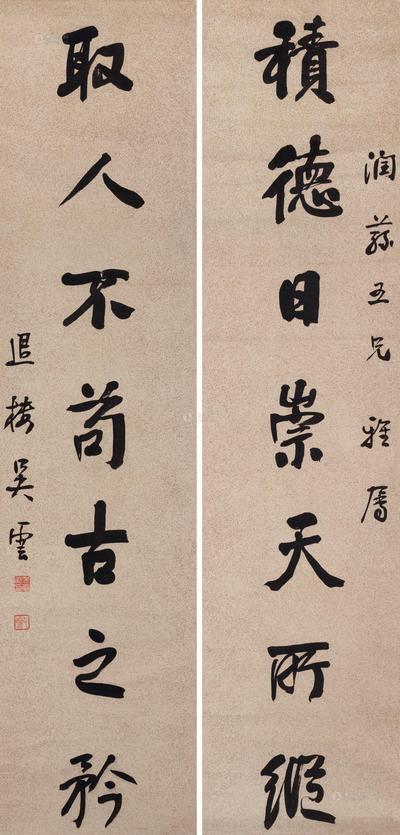 潤蓀五兄 雅屬
積德日崇天所縱
取人不苟古之矜
退樓吳雲